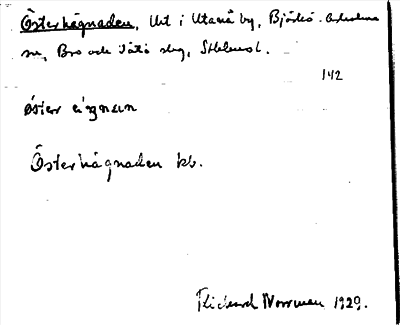 Österhägnaden, Ut i Utanå by, Björkö-Arholma
sn, Bro och Vätö slg, Sthlmsl.
142
öster
Österhägnaden kb.
Rickard Norrman 1929.